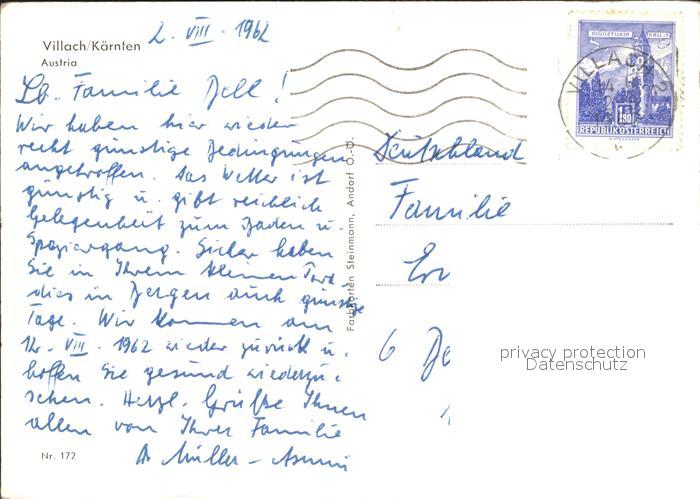 2. VIII. 1962
Villach/Kärnten
Austria
Lb. Familie Dell!
Wir haben hier wieder
recht günstige Bedingungen
angetroffen. Das Wetter ist
günstig u. gibt reichlich
Gelegenheit zum Baden u.
Spaziergang. Sicher haben
Sie in Ihrem kleinen
dies in Bergen auch günstige
Tage. Wir kommen am
12. VIII. 1962 wieder zurück u.
hoffen Sie gesund wiederzu-
sehen. Herzl. Grüße Ihnen
allen von Ihrer Familie
Dr Müller -
Nr. 172
Farbkarten Steinmann, Andorf O.-Ö.
MÜNZTURM HALL i. T.
S 1.80
REPUBLIK ÖSTERREICH
VILLACH 2
Deutschland
Familie
Er
6
privacy protection
Datenschutz